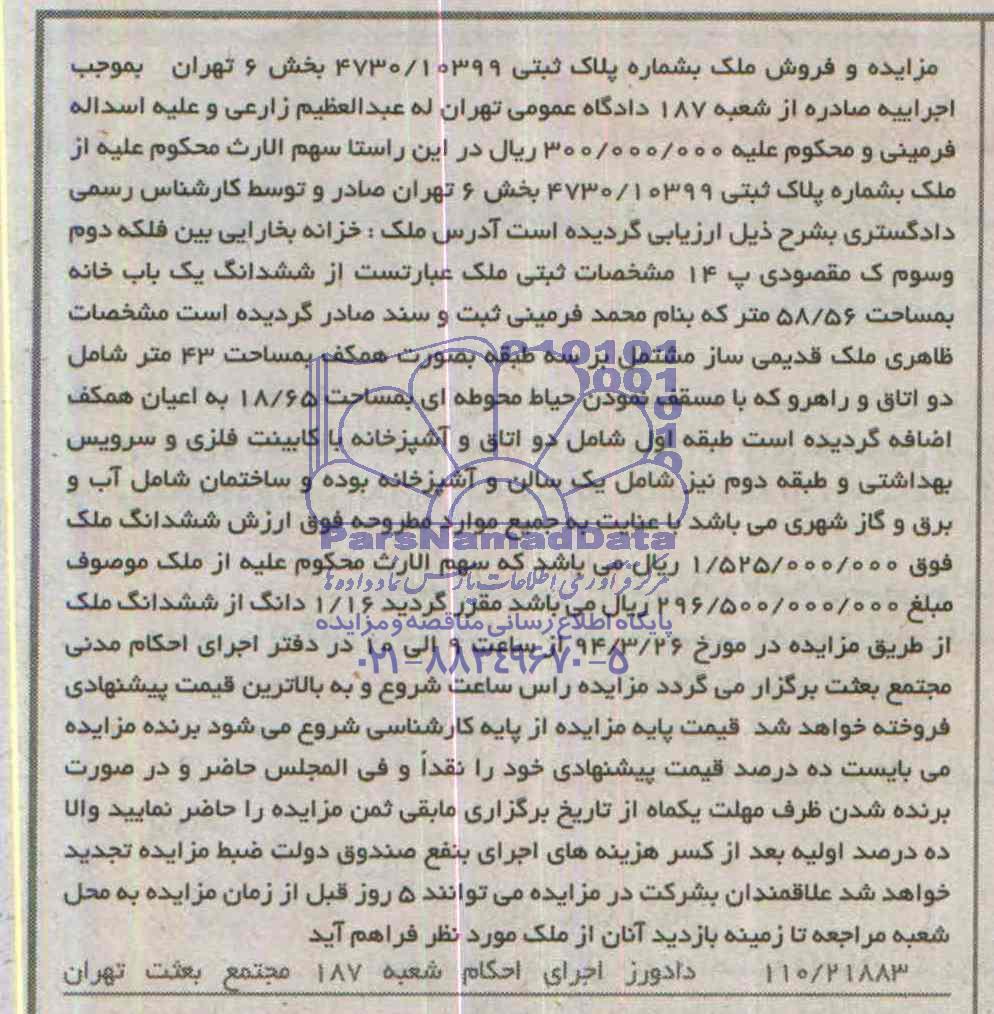 مزایده و فروش ملک بشماره پلاک ثبتی ۴۷۳۰/۱۰۳۹۹ بخش ۶ تهران بموجب
اجراییه صادره از شعبه ۱۸۷ دادگاه عمومی تهران له عبدالعظیم زارعی و علیه اسداله
فرمینی و محکوم علیه ۳۰۰/۰۰۰/۰۰۰ ریال در این راستا سهم الارث محکوم علیه از
ملک بشماره پلاک ثبتی ۴۷۳۰/۱۰۳۹۹ بخش ۶ تهران صادر و توسط کارشناس رسمی
دادگستری بشرح ذیل ارزیابی گردیده است آدرس ملک : خزانه بخارایی بین فلکه دوم
وسوم ک مقصودی پ ۱۴ مشخصات ثبتی ملک عبارتست از ششدانگ یک باب خانه
بمساحت ۵۸/۵۶ متر که بنام محمد فرمینی ثبت و سند صادر گردیده است مشخصات
ظاهری ملک قدیمی ساز مشتمل بر سه طبقه بصورت همکف بمساحت ۴۳ متر شامل
دو اتاق و راهرو که با مسقف نمودن حیاط محوطه ای بمساحت ۱۸/۶۵ به اعیان همکف
اضافه گردیده است طبقه اول شامل دو اتاق و آشپزخانه با کابینت فلزی و سرویس
بهداشتی و طبقه دوم نیز شامل یک سالن و آشپزخانه بوده و ساختمان شامل آب و
برق و گاز شهری می باشد با عنایت به جمیع موارد مطروحه فوق ارزش ششدانگ ملک
ParsNamadData
فوق ۱/۵۲۵/۰۰۰/۰۰۰ ریال می باشد که سهم الارث محکوم علیه از ملک موصوف
مرکز فرآوری اطلاعات پارس نماد داده ها
مبلغ ۲۹۶/۵۰۰/۰۰۰/۰۰۰ ریال می باشد مقرر گردید ۱/۱۶ دانگ از ششدانگ ملک
پایگاه اطلاع رسانی مناقصه و مزایده
از طریق مزایده در مورخ ۹۴/۳/۲۶ از ساعت ۹ الی ۱۰ در دفتر اجرای احکام مدنی
۰۲۱-۸۸۳۴۹۶۷۰-۵
مجتمع بعثت برگزار می گردد مزایده راس ساعت شروع و به بالاترین قیمت پیشنهادی
فروخته خواهد شد قیمت پایه مزایده از پایه کارشناسی شروع می شود برنده مزایده
می بایست ده درصد قیمت پیشنهادی خود را نقداً و فی المجلس حاضر و در صورت
برنده شدن ظرف مهلت یکماه از تاریخ برگزاری مابقی ثمن مزایده را حاضر نمایید والا
ده درصد اولیه بعد از کسر هزینه های اجرای بنفع صندوق دولت ضبط مزایده تجدید
خواهد شد علاقمندان بشرکت در مزایده می توانند ۵ روز قبل از زمان مزایده به محل
شعبه مراجعه تا زمینه بازدید آنان از ملک مورد نظر فراهم آید
۱۱۰/۲۱۸۸۳ دادورز اجرای احکام شعبه ۱۸۷ مجتمع بعثت تهران